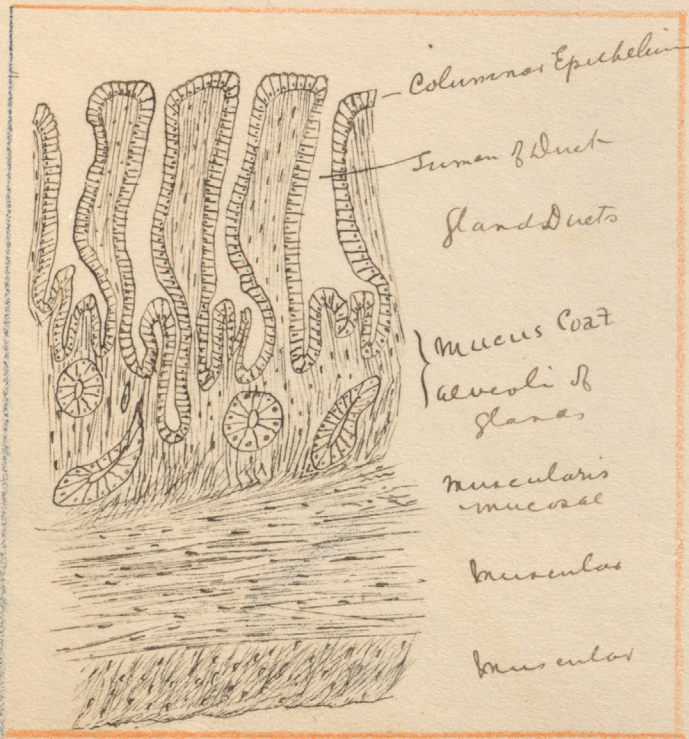 Columnar Epithelium
Lumen of Duct
Gland Ducts
Mucus Coat
alveoli of
glands
muscularis
mucosae
Muscular
Muscular